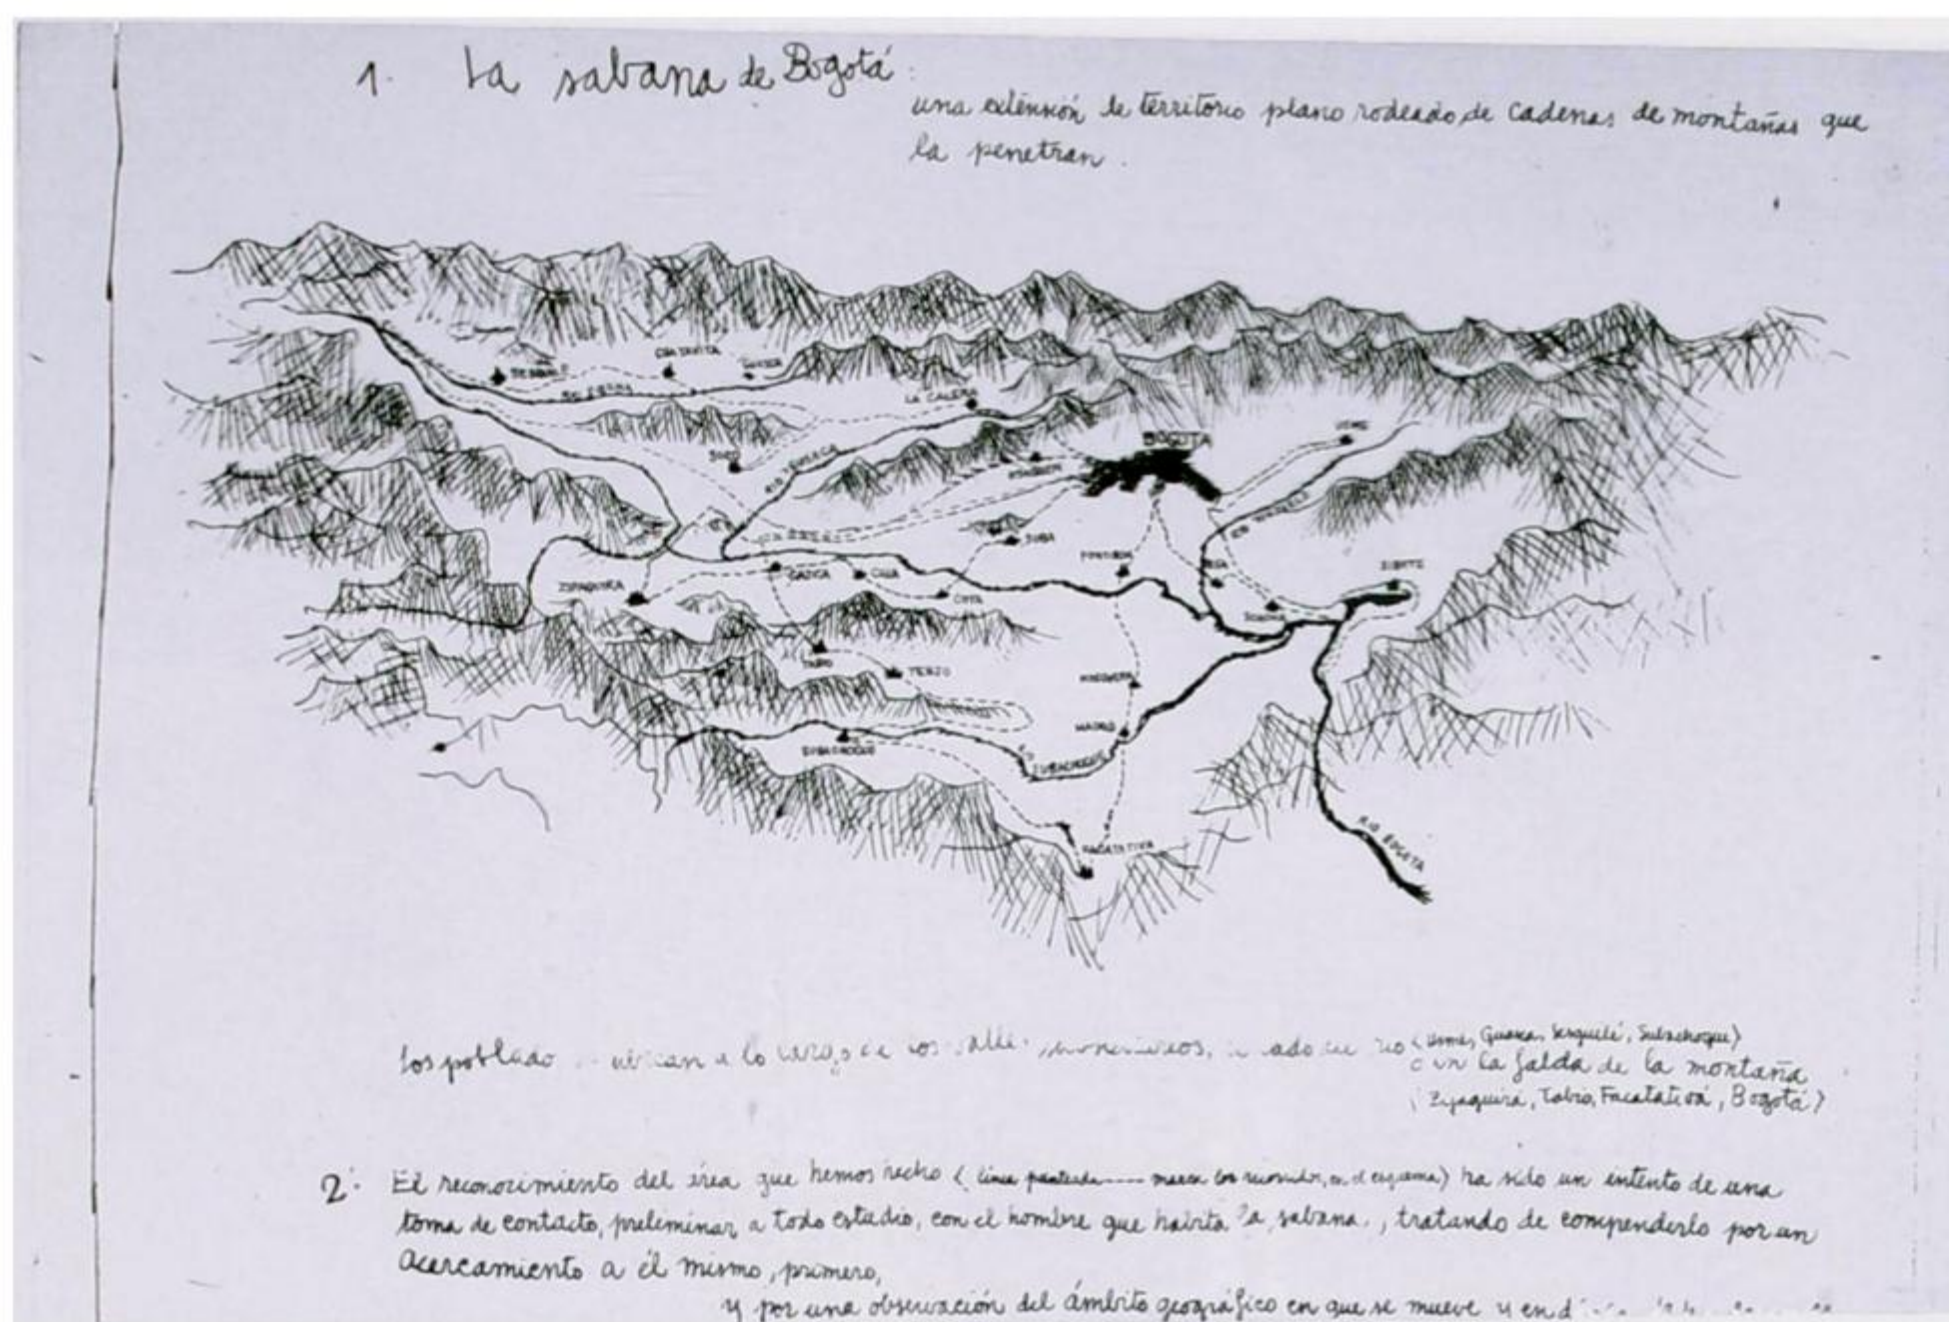 1. La sabana de Bogotá:
una extensión de territorio plano rodeado de cadenas de montañas que
la penetran.
GUATAVITA
GUASCA
LA CALERA
BOGOTA
USME
SUBA
SIBATE
ZIPAQUIRA
CAJICA
CHIA
COTA
FONTIBON
BOSA
TABIO
TENJO
MADRID
SUBACHOQUE
RIO SUBACHOQUE
FACATATIVA
RIO BOGOTA
los poblado ubican a lo largo de los
(Usme, Guasca, Sesquilé, Subachoque)
o en la falda de la montaña
(Zipaquirá, Tabio, Facatativá, Bogotá)
2. El reconocimiento del área que hemos hecho (línea punteada ---- marca los recorridos, en el esquema) ha sido un intento de una
toma de contacto, preliminar a todo estudio, con el hombre que habita la sabana, tratando de compenderlo por un
Acercamiento a él mismo, primero,
y por una observación del ámbito geográfico en que se mueve y en